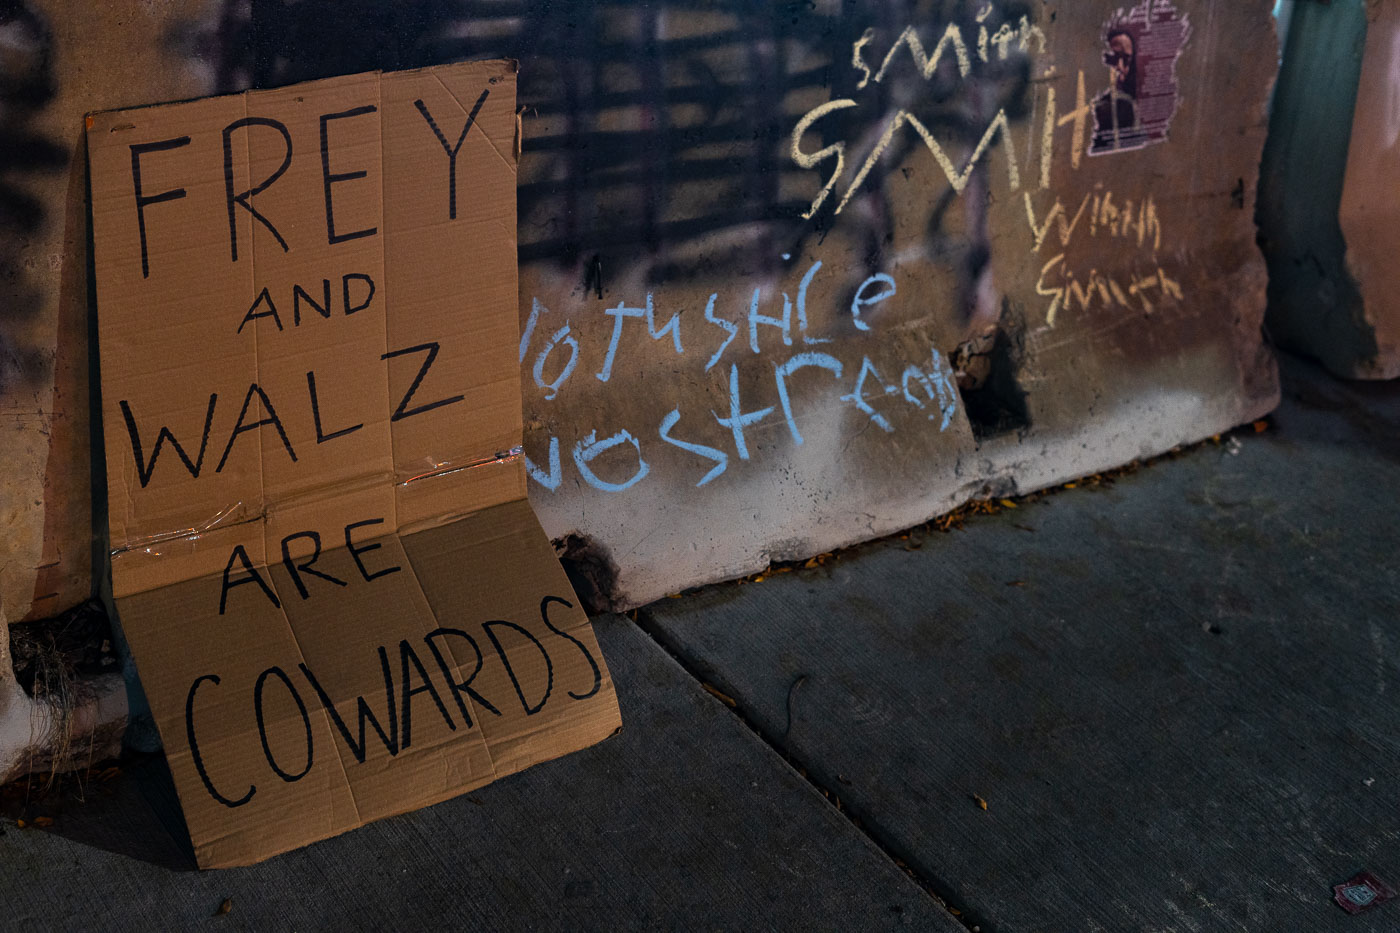 FREY
AND
WALZ
ARE
COWARDS
SMith
SMit
Winn
Smith
JUSticE
NO StrEEtS